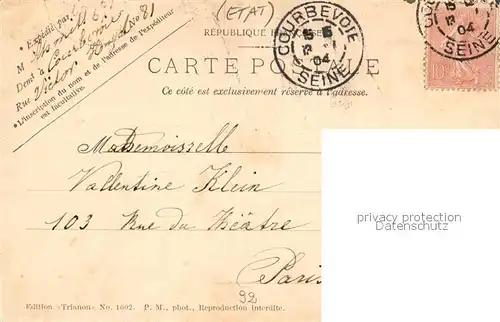 (ETAT)
* Expédié par
M
Demt à Courbevoie
Rue Victor Hugo No 81
* L'inscription du nom et de l'adresse de l'expéditeur
est facultative.
RÉPUBLIQUE FRANÇAISE
CARTE POSTALE
Ce côté est exclusivement réservé à l'adresse.
COURBEVOIE
04
SEINE
10c
04
SEINE
Mademoisselle
Vallentine Klein
103 Rue du Théâtre
Paris
92
privacy protection
Datenschutz
Edition «Trianon» No. 1602. P. M., phot., Reproduction interdite.